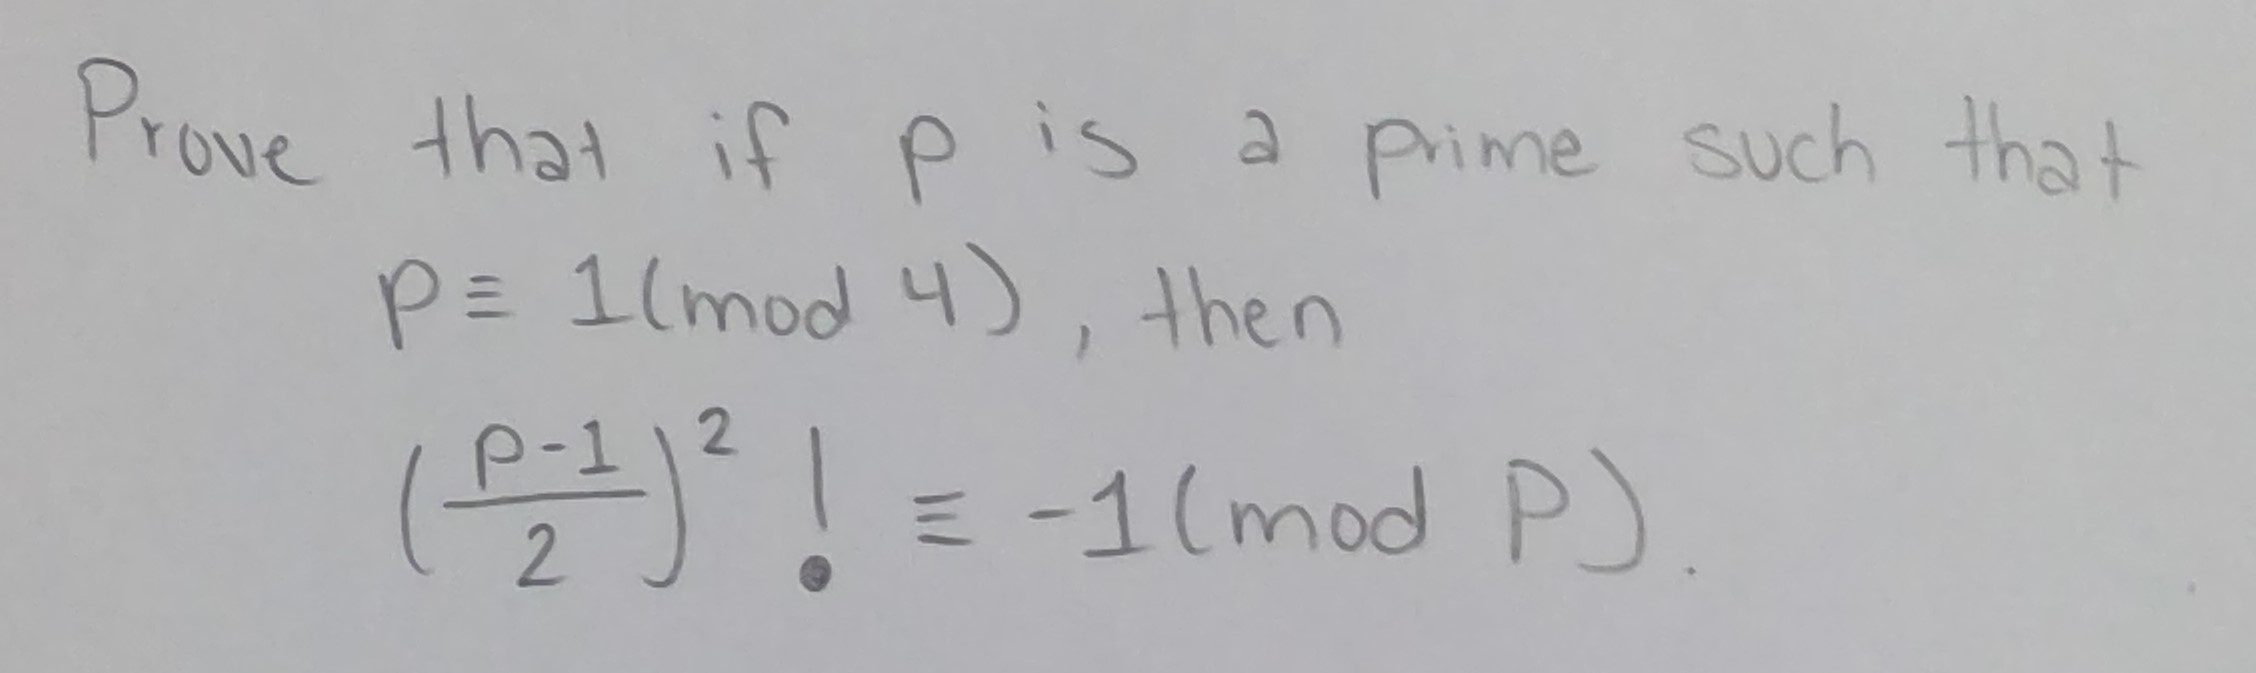 Prove that if p is a prime such that
p ≡ 1 (mod 4), then
(\frac{p-1}{2})^2 ! ≡ -1 (mod p).